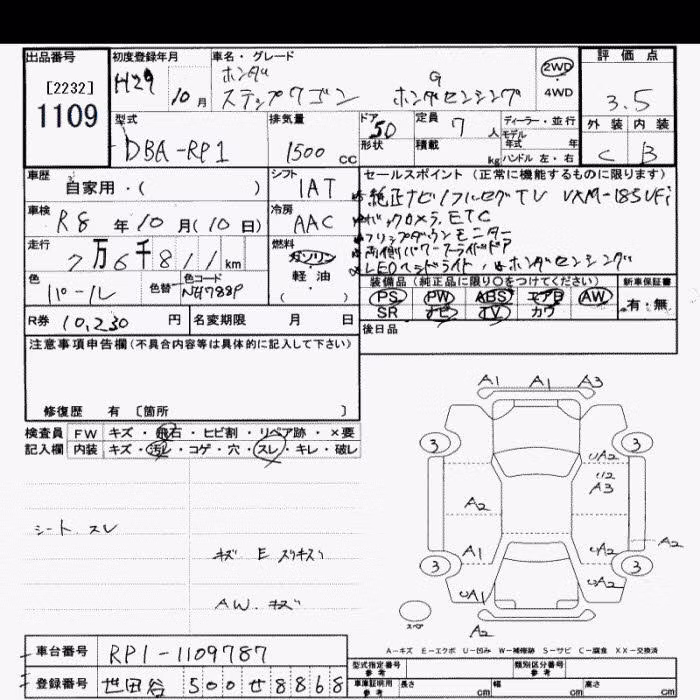 出品番号 初度登録年月 車名・グレード 評価点
[2232]
1109
H29 10月
ホンダ
ステップワゴン G ホンダセンシング
2WD
・
4WD
3.5
外装 内装
C B
型式 排気量 ドア 定員 ディーラー・並行
DBA-RP1 1500 cc 50 7 人
モデル年式 年
形状 積載 kg ハンドル 左・右
車歴 自家用・( )
シフト IAT
セールスポイント (正常に機能するものに限ります)
純正ナビ/フルセグTV VXM-185VFi
バックカメラ. ETC
フリップダウンモニター
両側パワースライドドア
LEDヘッドライト, ホンダセンシング
車検 R8 年 10 月 (10 日)
冷房 AAC
走行 7万6千811 km
燃料 ガソリン
軽・油
( )
色 パール 色替 色コード NH788P
装備品 (純正品に限り〇をつけてください) 新車保証書
PS PW ABS エアB AW 有・無
SR ナビ TV カワ
R券 10,230 円 名変期限 月 日
後日品
注意事項申告欄 (不具合内容等は具体的に記入して下さい)
修復歴 有 〔箇所 〕
検査員 FW キズ・飛石・ヒビ割・リペア跡・×要
記入欄 内装 キズ・汚レ・コゲ・穴・スレ・キレ・破レ
シート スレ
キズ E スリキズ
AW. キズ
A1 A1 A3
3 3
UA2
U2
A3
A2
A2
A1 UA2
3 3
UA1 UA2
スペア
A2
A-キズ E-エクボ U-凹み W-補修跡 S-サビ C-腐食 XX-交換済
車台番号 RP1-1109787
登録番号 世田谷 500 せ 8868
型式指定番号 参考 類別区分番号 参考
車庫証明用 参考 長さ cm 幅 cm 高さ cm